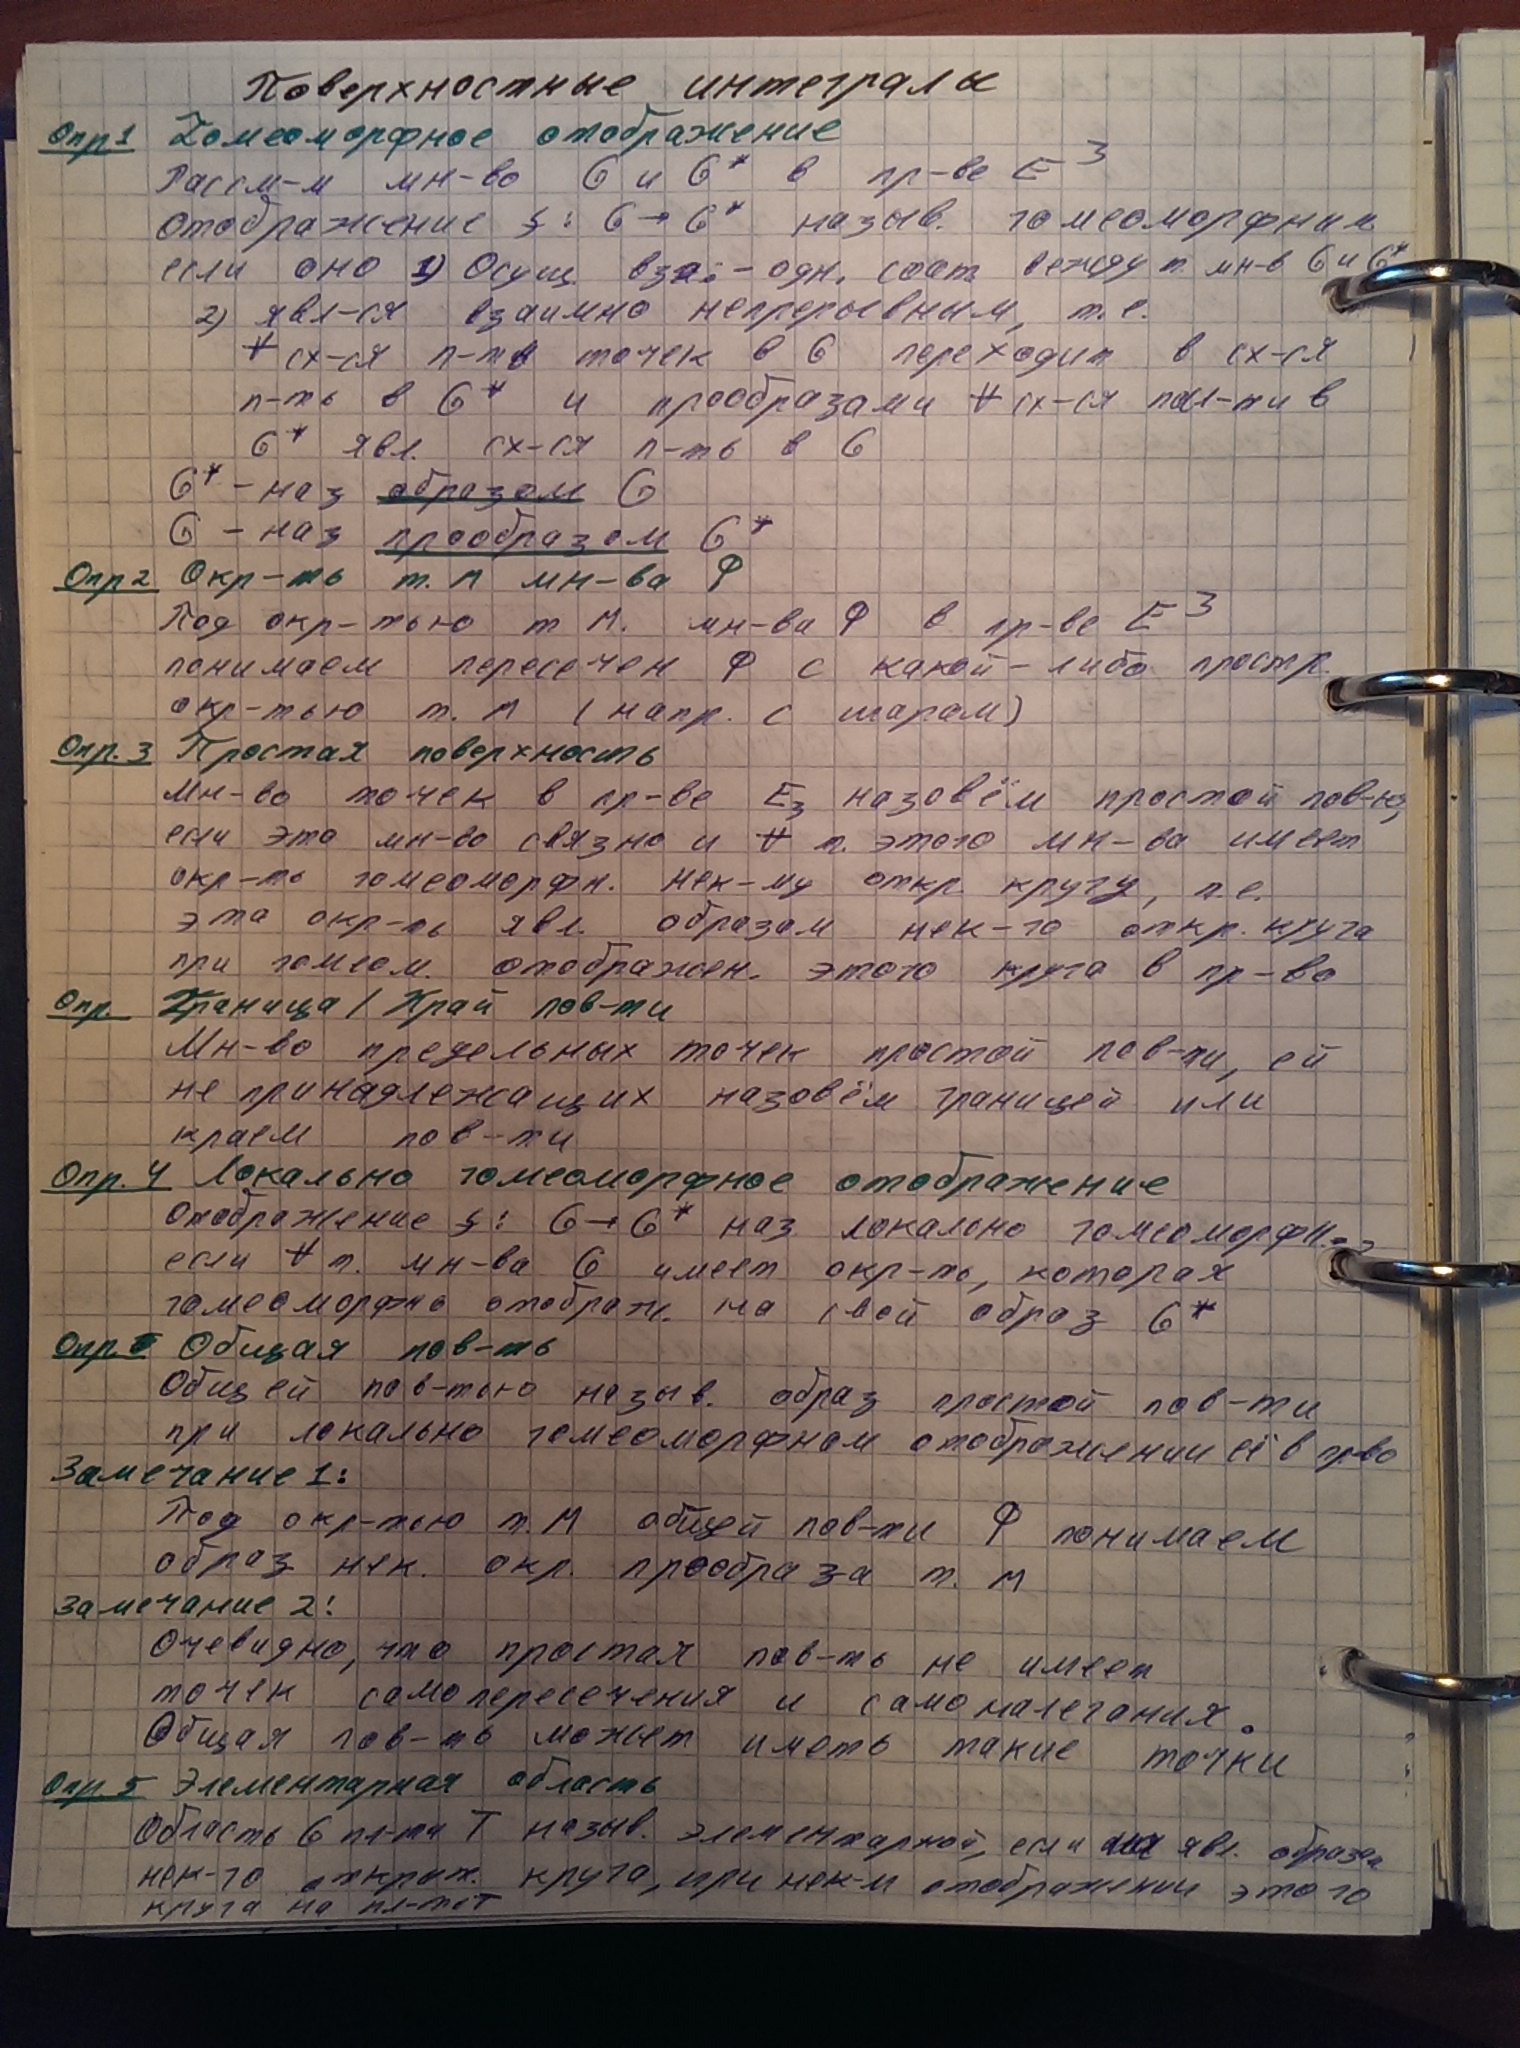 Поверхностные интегралы
Опр 1 Гомеоморфное отображение
Рассм-м мн-во G и G* в пр-ве E³
Отображение f: G → G* назыв. гомеоморфным
если оно 1) Осущ. вза.-одн. соот. между т. мн-в G и G*
2) явл-ся взаимно непрерывным, т.е.
∀ сх-ся п-ть точек в G переходит в сх-ся
п-ть в G* и прообразами ∀ сх-ся посл-ти в
G* явл. сх-ся п-ть в G
G* - наз образом G
G - наз прообразом G*
Опр 2 Окр-ть т. М мн-ва Ф
Под окр-тью т М. мн-ва Ф в пр-ве E³
понимаем пересечен Ф с какой-либо простр.
окр-тью т. М (напр. с шаром)
Опр. 3 Простая поверхность
Мн-во точек в пр-ве E₃ назовём простой пов-ю,
если это мн-во связно и ∀ т. этого мн-ва имеет
окр-ть гомеоморфн. нек-му откр. кругу, т.е.
эта окр-ть явл. образом нек-го откр. круга
при гомеом. отображен. этого круга в пр-во
Опр. Граница / Край пов-ти
Мн-во предельных точек простой пов-ти, ей
не принадлежащих назовём границей или
краем пов-ти
Опр. 4 Локально гомеоморфное отображение
Отображение f: G → G* наз локально гомеоморфн.
если ∀ т. мн-ва G имеет окр-ть, которая
гомеоморфно отображ. на свой образ G*
Опр. Общая пов-ть
Общей пов-тью назыв. образ простой пов-ти
при локально гомеоморфном отображении её в пр-во
Замечание 1:
Под окр-тью т. М общей пов-ти Ф понимаем
образ нек. окр. прообраза т. М
Замечание 2:
Очевидно, что простая пов-ть не имеет
точек самопересечения и самоналегания.
Общая пов-ть может иметь такие точки
Опр. 5 Элементарная область
Область G пл-ти T назыв. элементарной, если явл. образом
нек-го открыт. круга, при нек-м отображении этого
круга на пл-ть T